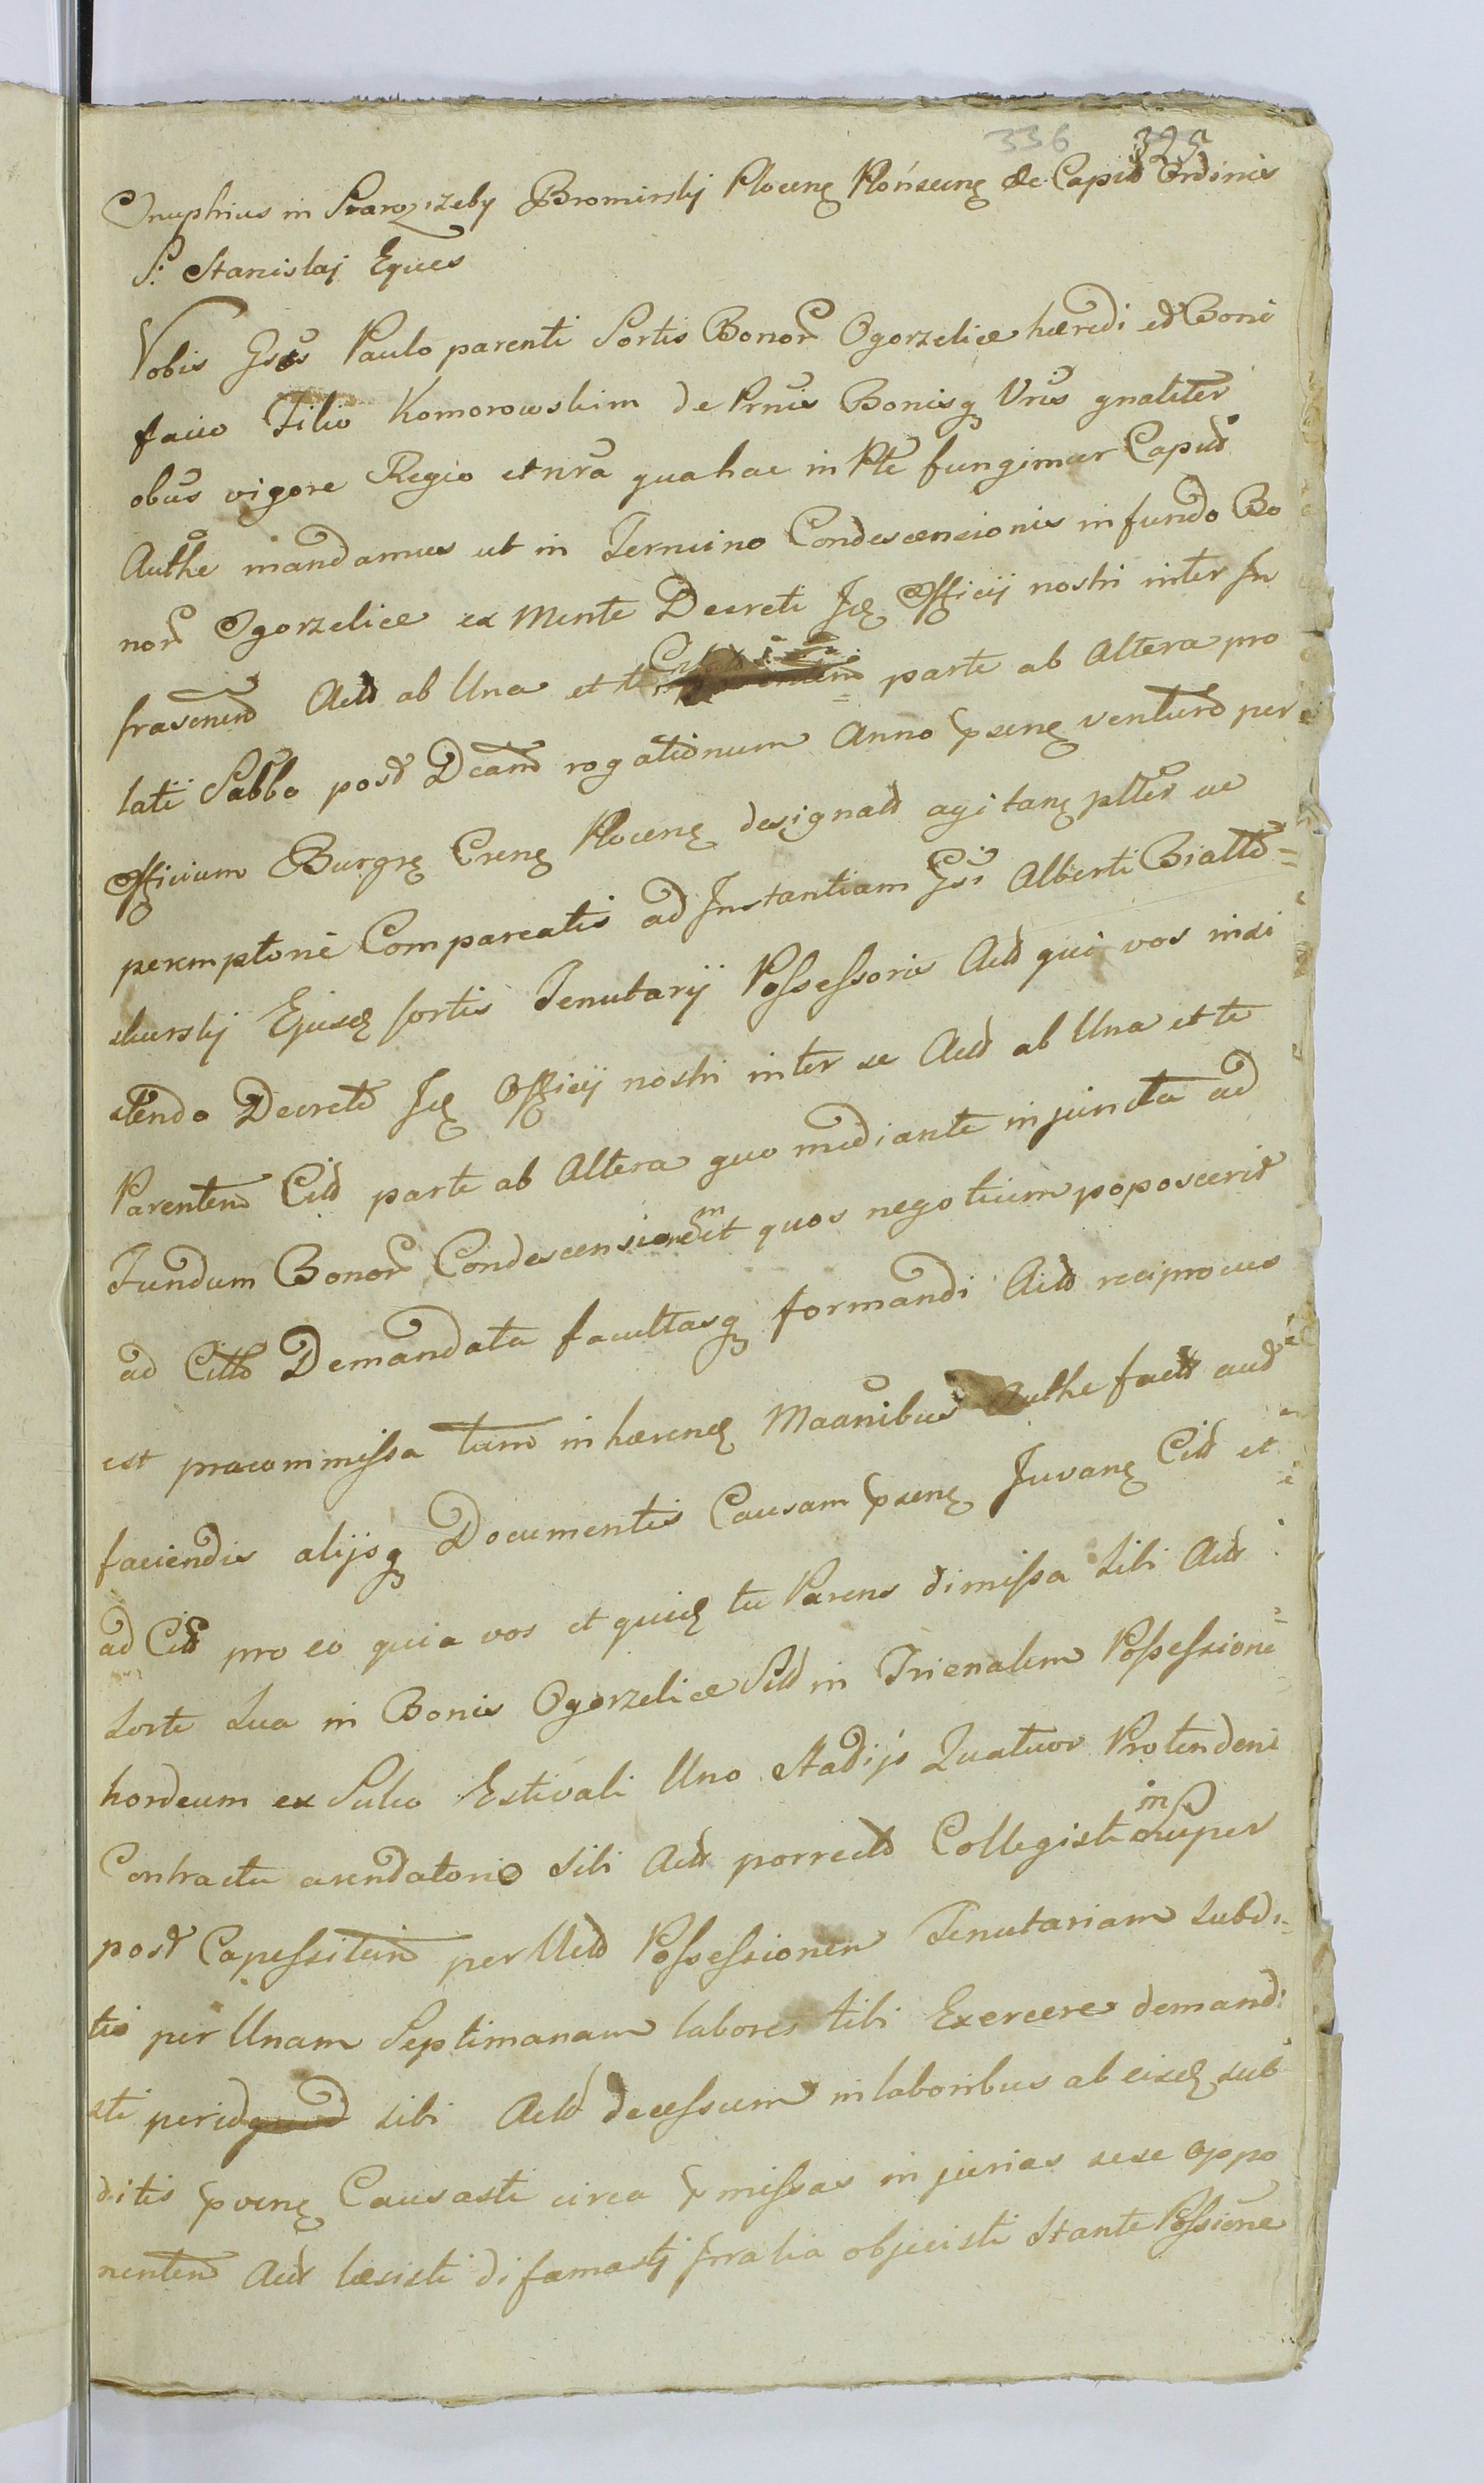 336 325
Onuphius in Starozrzeby Bromirskj Plocens Płońscens &c Capits Ordinis
S. Stanislaj Eques
Vobis Gsis Paulo parenti Sortis Bonor Ogorzelice hæredi et Boni
facio Filio Komorowskim de Prnis Bonisq Vris gnaliter
obus vigore Regio et nra qua hac in Pte fungimur Capnd
Authe mandamus ut in Termino Condescensionis in fundo Bo
nor Ogorzelice ex Mente Decreti Jd Officij nostri inter In
frascrend Actt ab Una et te parte ab Altera pro
lati Sabbo post Dcam rogationum Anno psens venturo per
Officium Burgr Crens Plocens designatt agitans plter ac
peremptorie Compareatis ad Instantiam Gsi Alberti Biallo=
skurskj Ejusd sortis Tenutarij Possessoris Actt qui vos insi
stendo Decreto Jd Officij nostri inter se Actt ab Una et te
Parentem Citt parte ab Altera quo mediante injuncta ad
Fundum Bonor Condescensione m et quos negotium poposcerit
ad Citto Demandata facultasq formandi Actt reciprocus
est præcommissa tum inhærend Maanibus Authe factt aut
faciendis alijsq Documentis Causam psens Juvans Citt et
ad Citt pro eo quia vos et quid tu Parens dimissa sibi Actt
sorte sua in Bonis Ogorzelice Sitt in Trienalem Possessione
hordeum ex Sulco Estivali Uno Stadijs Quatuor Protendeni
Contractu arendatorio sibi Actt porrecto Collegisti insuper
post Capessitam per Actt Possessionem Tenutariam subdi=
tis per Unam Septimanam labores tibi Exercere demandi
sti per id quod sibi Actt decessum in laboribus ab eisd sub
ditis pvens Causasti circa pmissas injurias sese oppo
nentem Actt læsisti difamastj Irralia objecisti Stante Possione